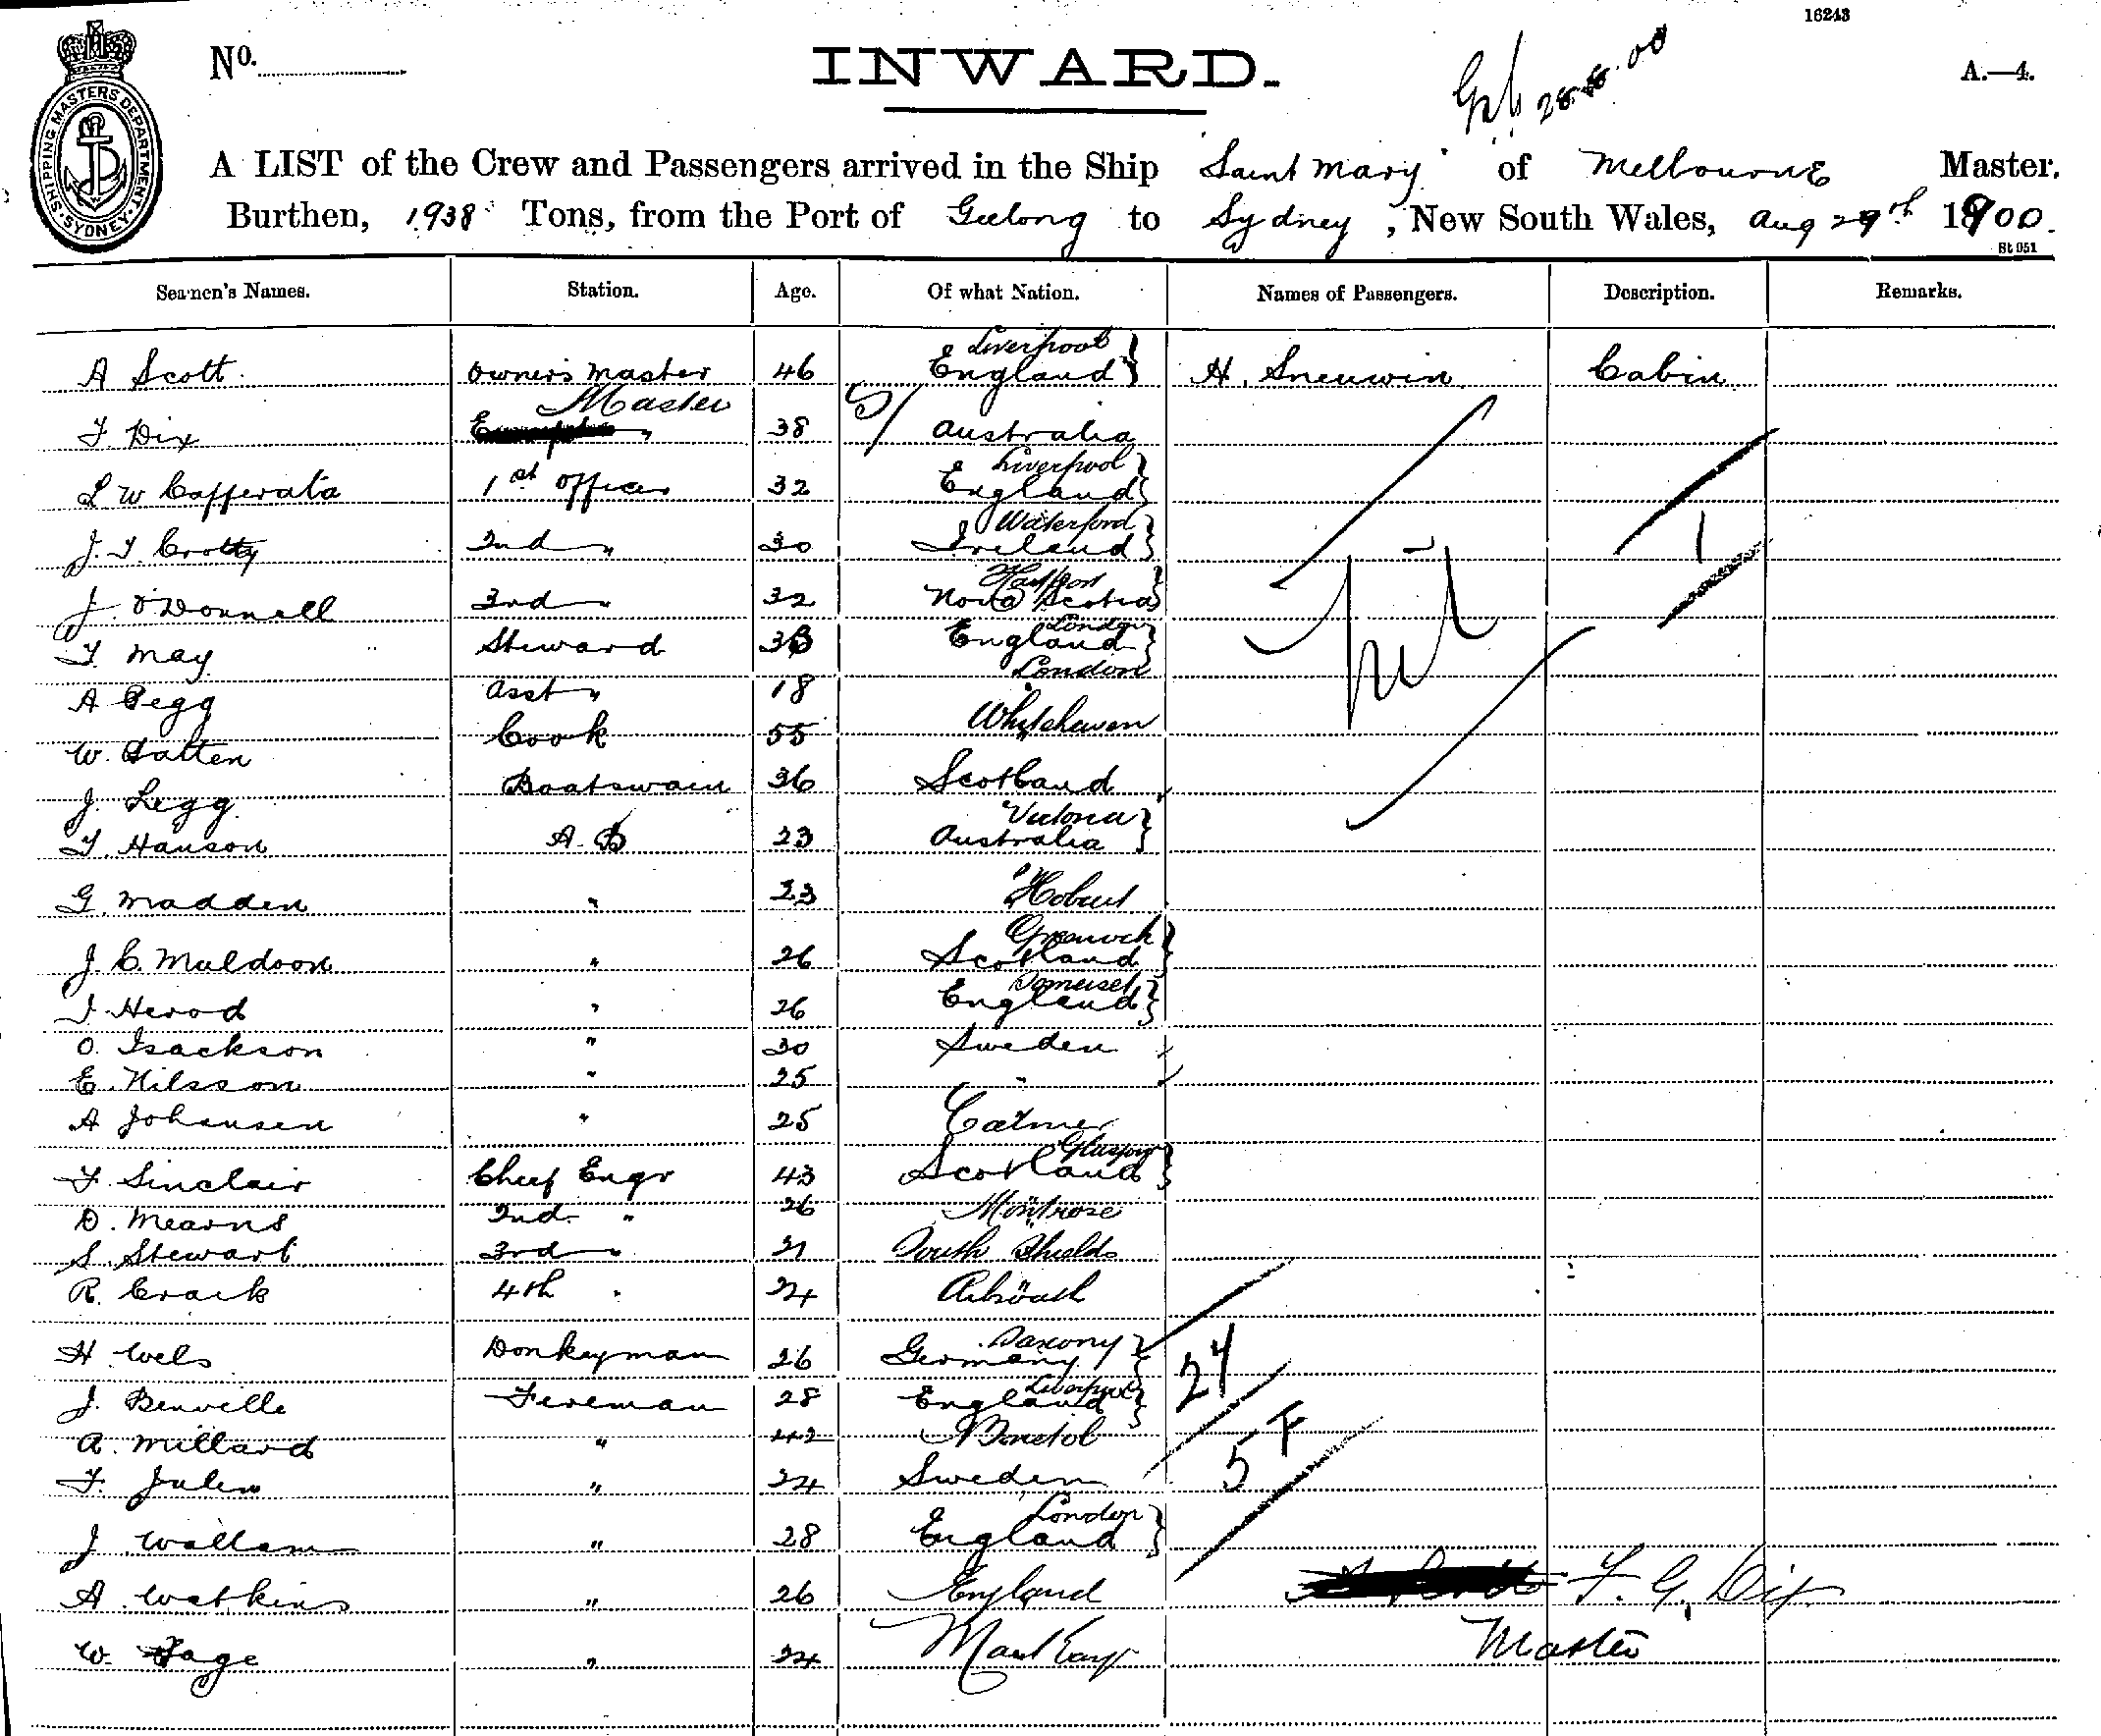 16243
No.
INWARD.
A.—4.
SHIPPING MASTERS DEPARTMENT. SYDNEY.
A LIST of the Crew and Passengers arrived in the Ship "Saint Mary" of Melbourne Master,
Burthen, 1938 Tons, from the Port of Geelong to Sydney, New South Wales, Aug 29th 1900.
St 951
Seamen's Names. Station. Age. Of what Nation. Names of Passengers. Description. Remarks.
A Scott Owners Master 46 Liverpool England H. Cabin
Master
T. Dix " 38 Australia
L W Cafferata 1st Officer 32 Liverpool England
J. T. Crotty 2nd " 30 Waterford Ireland
J. O'Donnell 3rd " 32 Nova Scotia
T. May Steward London England
A Pegg Asst " 18 London
W. Cook 55 Whitehaven
J. Legg Boatswain 36 Scotland
T. Hanson A.B 23 Victoria Australia
G. Madden " 23 Hobart
J. C. Muldoon " 26 Greenock Scotland
J. Herod " 26 Somerset England
O. Isackson " 30 Sweden
E. Nilsson " 25 "
A Johansen " 25
F. Sinclair Chief Engr 43 Glasgow Scotland
D. Mearns 2nd " 26 Montrose
S. Stewart 3rd " 21 South Shields
R. Crack 4th " 24 Arbroath
H Wels Donkeyman 26 Saxony Germany
24
J. Benville Fireman 28 Liverpool England
A. Millard " 42 Bristol
5 F
F. " 24 Sweden
J Wallam " 28 London England
A Watkins " 26 England F. G. Dix
W. Page " 24 Master